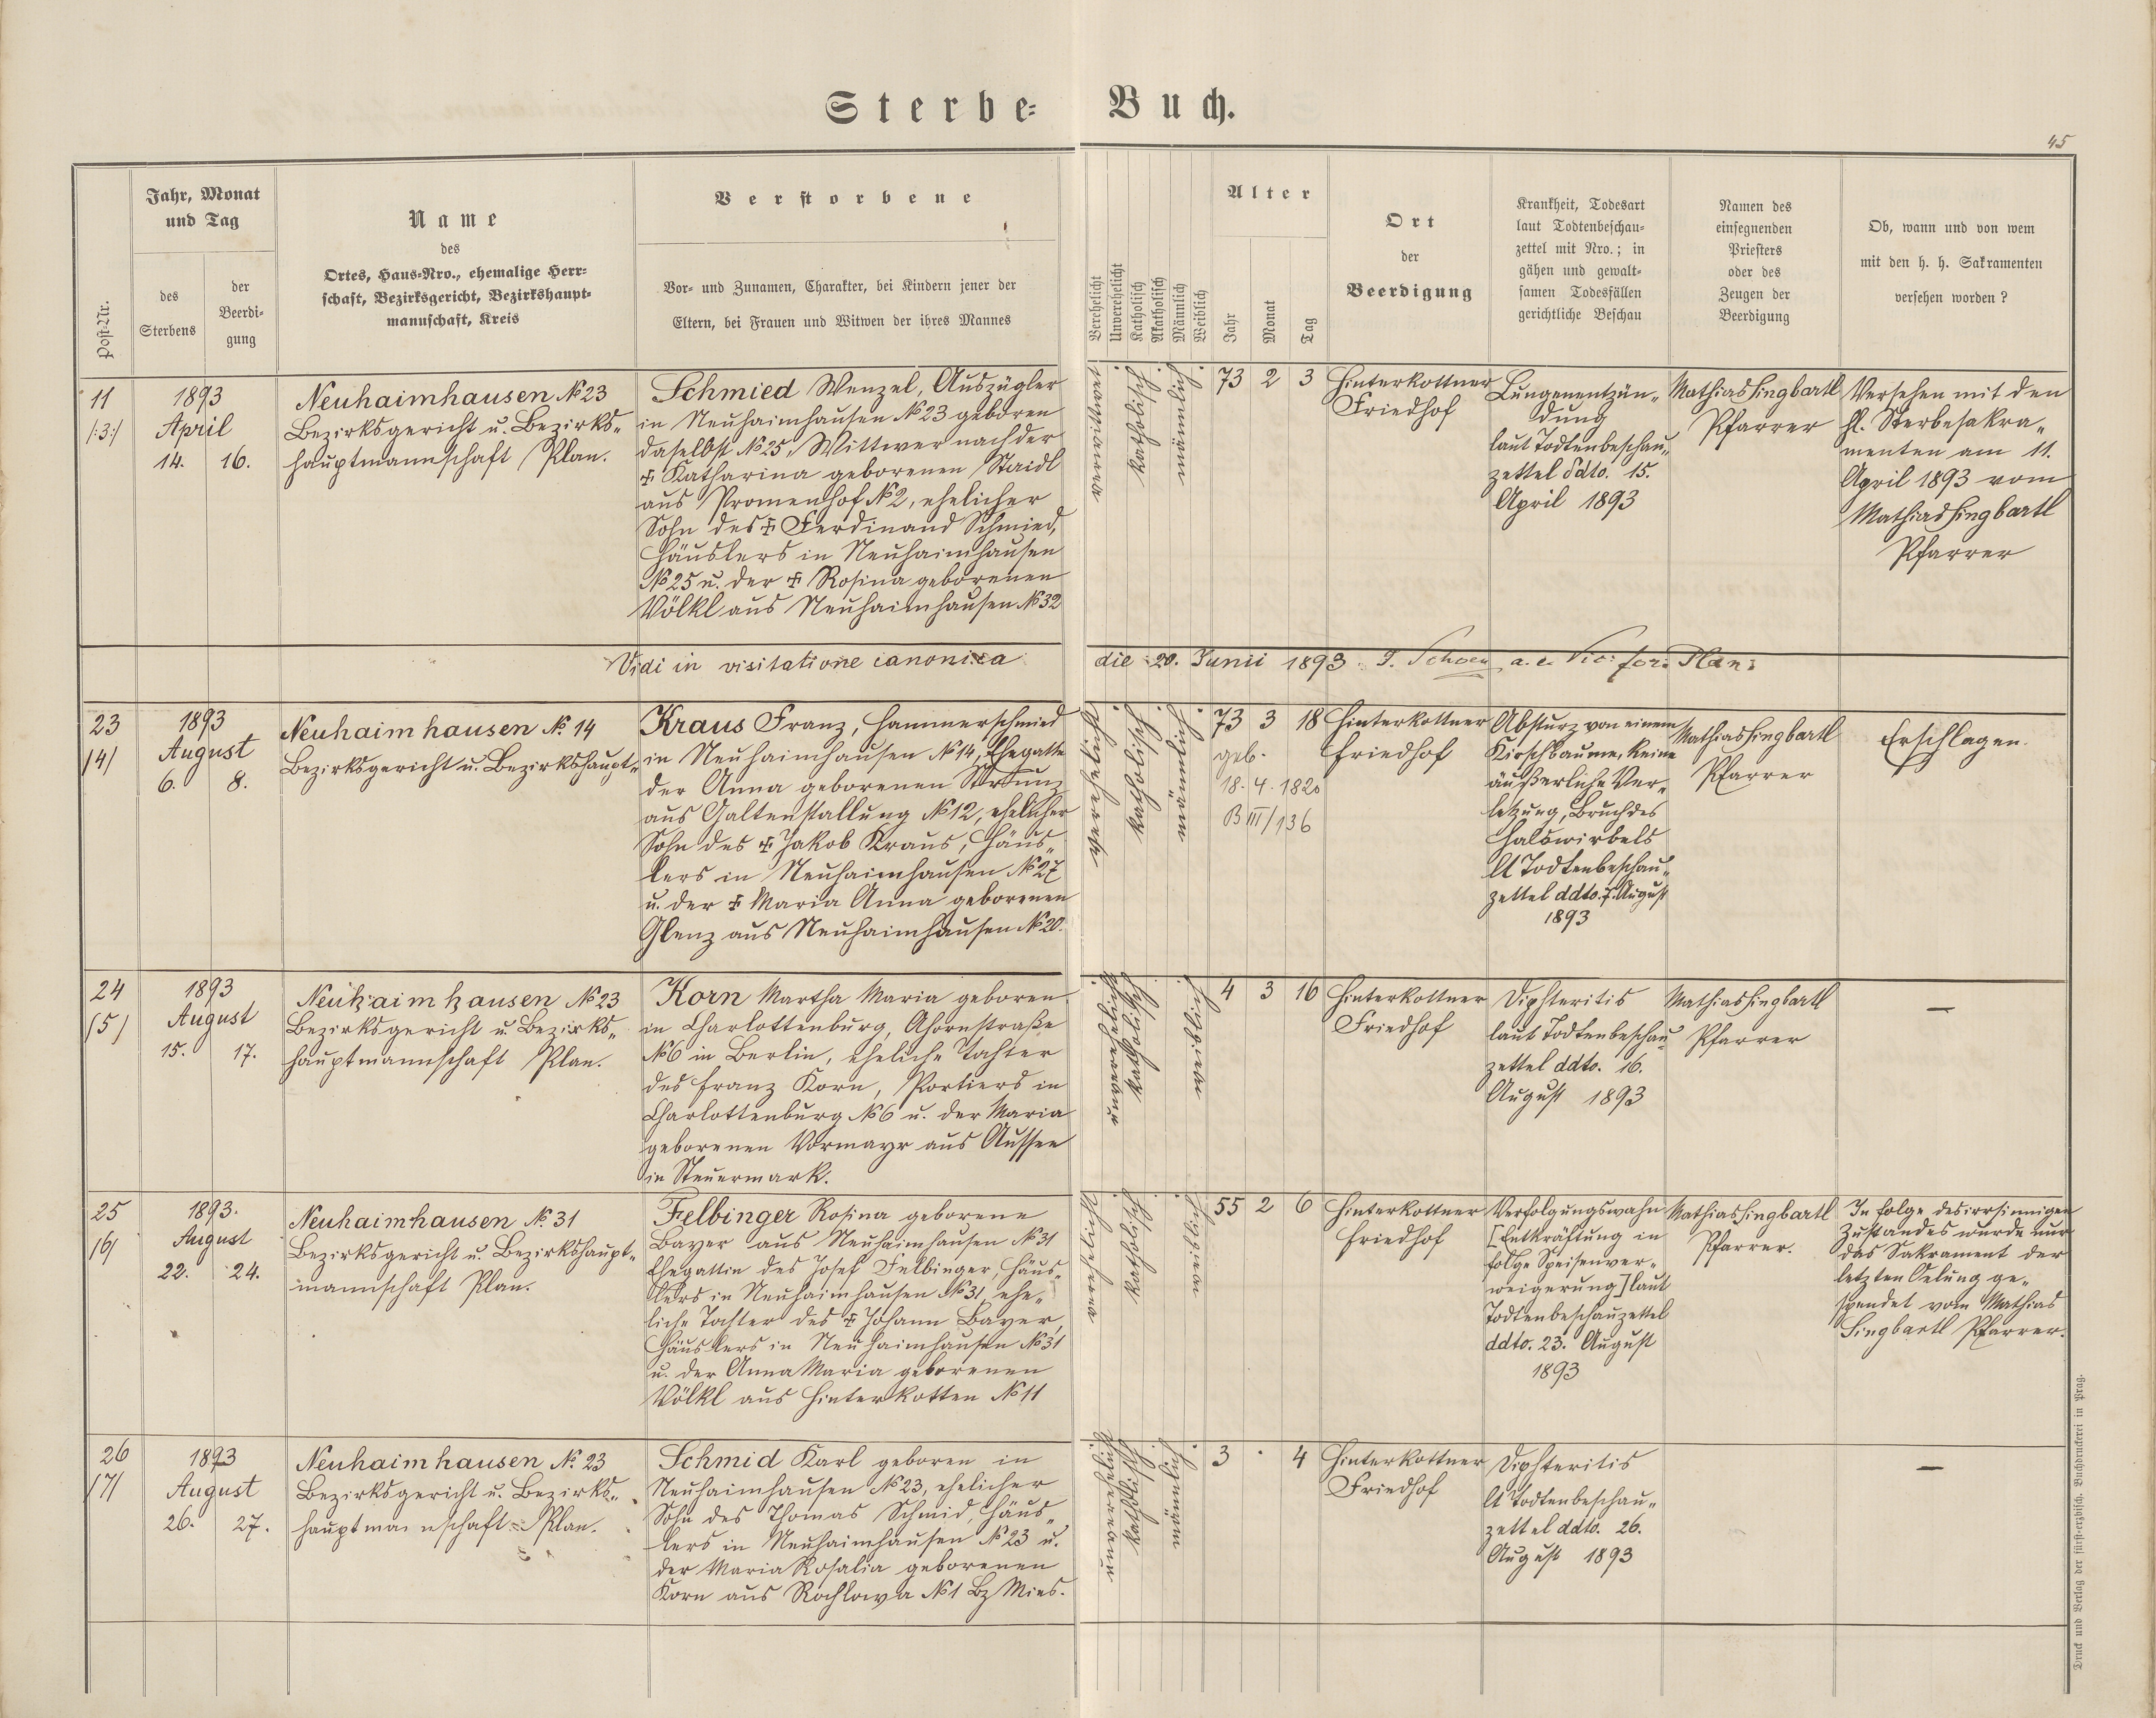 Sterbe-Buch.
45
Post-Nr.
Jahr, Monat
und Tag
des
Sterbens
der
Beerdi-
gung
Name
des
Ortes, Haus-Nro., ehemalige Herr-
schaft, Bezirksgericht, Bezirkshaupt-
mannschaft, Kreis
Verstorbene
Vor- und Zunamen, Charakter, bei Kindern jener der
Eltern, bei Frauen und Witwen der ihres Mannes
Verehelicht
Unverehelicht
Katholisch
Akatholisch
Männlich
Weiblich
Alter
Jahr
Monat
Tag
Ort
der
Beerdigung
Krankheit, Todesart
laut Todtenbeschau-
zettel mit Nro.; in
gähen und gewalt-
samen Todesfällen
gerichtliche Beschau
Namen des
einsegnenden
Priesters
oder des
Zeugen der
Beerdigung
Ob, wann und von wem
mit den h. h. Sakramenten
versehen worden?
11
/:3:/
1893
April
14. 16.
Neuhaimhausen № 23
Bezirksgericht u. Bezirks-
hauptmannschaft Plan.
Schmied Wenzel, Auszügler
in Neuhaimhausen № 23 geboren
daselbst № 25, Wittwer nach der
☩ Katharina geborenen Staidl
aus Promenhof № 2, ehelicher
Sohn des ☩ Ferdinand Schmied,
Häuslers in Neuhaimhausen
№ 25 u. der ☩ Rosina geborenen
Völkl aus Neuhaimhausen № 32
verwittwet
katholisch
männlich
73 2 3
Hinterkottner
Friedhof
Lungenentzün-
dung
laut Todtenbeschau-
zettel ddto. 15.
April 1893
Mathias Singbartl
Pfarrer
Versehen mit den
hl. Sterbesakra-
menten am 11.
April 1893 vom
Mathias Singbartl
Pfarrer
Vidi in visitatione canonica die 20. Junii 1893 J. Schoen a. e. Vic. for. Plan.
23
/4/
1893
August
6. 8.
Neuhaimhausen № 14
Bezirksgericht u. Bezirkshaupt-
Kraus Franz, Hammerschmied
in Neuhaimhausen № 14, Ehegatte
der Anna geborenen Strunz
aus Galtenstallung № 12, ehelicher
Sohn des ☩ Jakob Kraus, Häus-
lers in Neuhaimhausen № 27
u. der ☩ Maria Anna geborenen
Glenz aus Neuhaimhausen № 20.
verehelicht
katholisch
männlich
73 3 18
geb.
18. 4. 1820
B III/136
Hinterkottner
Friedhof
Absturz von einem
Kirschbaume, keine
äußerliche Ver-
letzung, Bruch des
Halswirbels
lt Todtenbeschau-
zettel ddto. 7. August
1893
Mathias Singbartl
Pfarrer
Erschlagen.
24
/5/
1893
August
15. 17.
Neuhaimhausen № 23
Bezirksgericht u. Bezirks-
hauptmannschaft Plan.
Korn Martha Maria geboren
in Charlottenburg, Ahornstraße
№ 6 in Berlin, eheliche Tochter
des Franz Korn, Portiers in
Charlottenburg № 6 u. der Maria
geborenen Vormayr aus Aussee
in Steuermark.
unverehelicht
katholisch
weiblich
4 3 16
Hinterkottner
Friedhof
Diphteritis
laut Todtenbeschau-
zettel ddto. 16.
August 1893
Mathias Singbartl
Pfarrer
—
25
/6/
1893.
August
22. 24.
Neuhaimhausen № 31
Bezirksgericht u. Bezirkshaupt-
mannschaft Plan.
Felbinger Rosina geborene
Bayer aus Neuhaimhausen № 31
Ehegattin des Josef Felbinger, Häus-
lers in Neuhaimhausen № 31, ehe-
liche Tochter des ☩ Johann Bayer,
Häuslers in Neuhaimhausen № 31
u. der Anna Maria geborenen
Völkl aus Hinterkotten № 11
verehelicht
katholisch
weiblich
55 2 6
Hinterkottner
Friedhof
Verfolgungswahn
[Entkräftung in
folge Speisenver-
weigerung] laut
Todtenbeschauzettel
ddto. 23. August
1893
Mathias Singbartl
Pfarrer.
In folge des irrsinnigen
Zustandes wurde nur
das Sakrament der
letzten Oelung ge-
spendet vom Mathias
Singbartl Pfarrer.
26
/7/
1893
August
26. 27.
Neuhaimhausen № 23
Bezirksgericht u. Bezirks-
hauptmannschaft Plan.
Schmid Karl geboren in
Neuhaimhausen № 23, ehelicher
Sohn des Thomas Schmid, Häus-
lers in Neuhaimhausen № 23 u.
der Maria Rosalia geborenen
Korn aus Rochlowa № 1 Bz Mies.
unverehelicht
katholisch
männlich
3 · 4
Hinterkottner
Friedhof
Diphteritis
lt Todtenbeschau-
zettel ddto. 26.
August 1893
—
Druck und Verlag der fürst-erzbisch. Buchdruckerei in Prag.